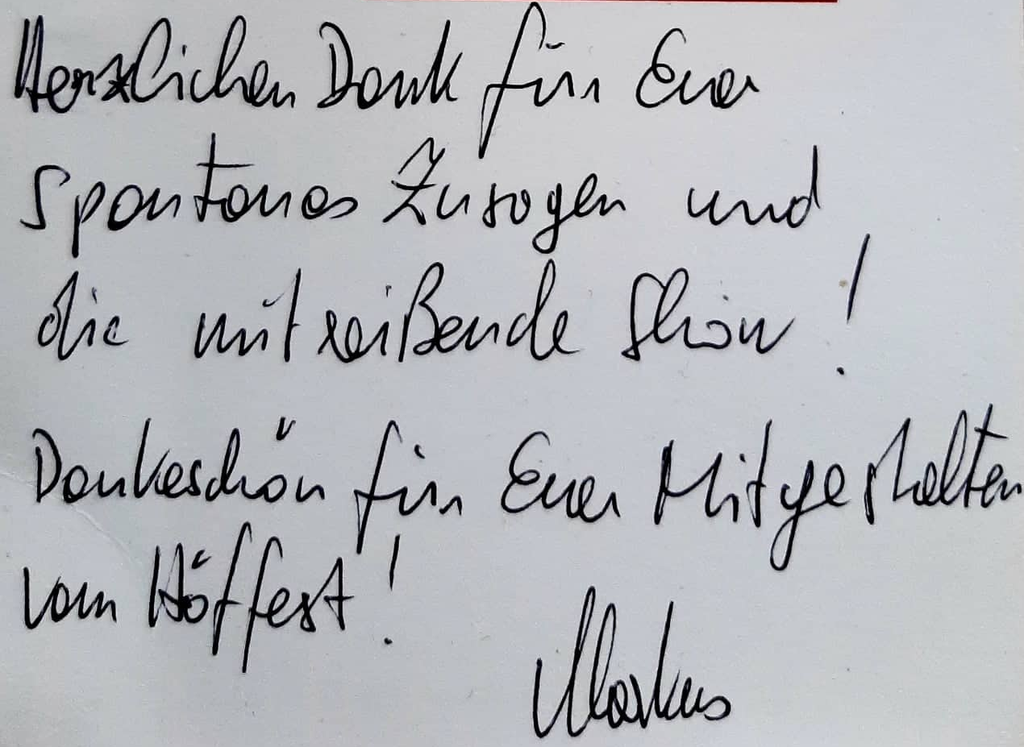 Herzlichen Dank für Euer
spontanes Zusagen und
die mitreißende Show!
Dankeschön für Euer Mitgestalten
vom Höffest!
Markus